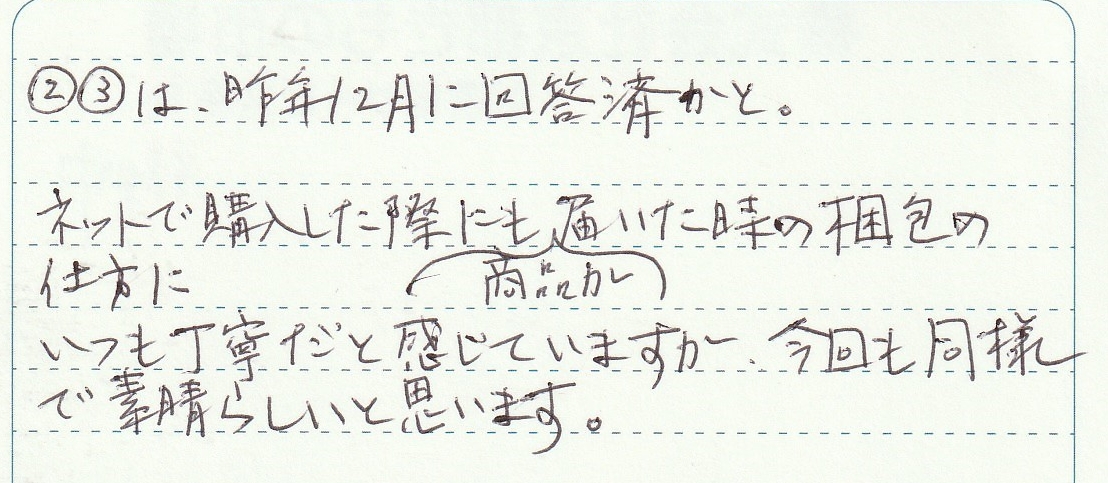 ②③は、昨年12月に回答済かと。
ネットで購入した際にも届いた時の梱包の
仕方に
商品が
いつも丁寧だと感じていますが、今回も同様
で素晴らしいと思います。